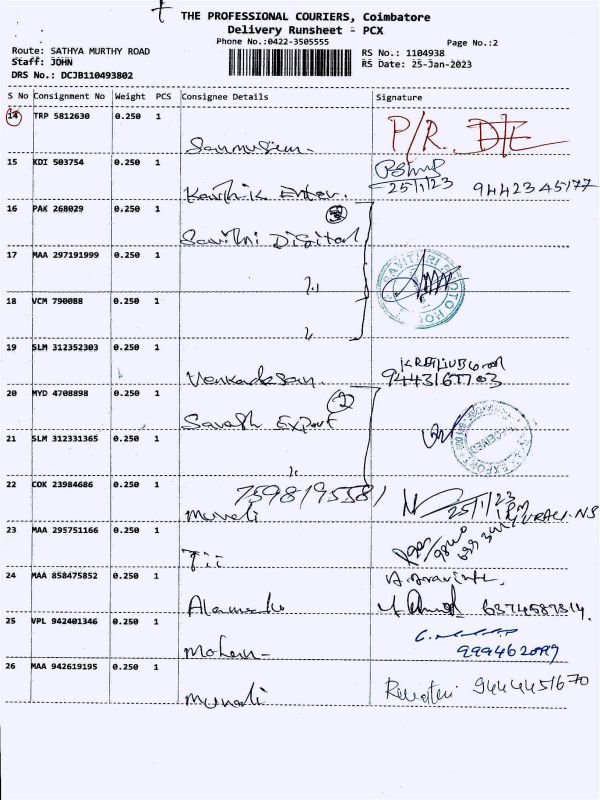 THE PROFESSIONAL COURIERS, Coimbatore
Delivery Runsheet - PCX
Phone No.:0422-3505555
Page No.:2
Route: SATHYA MURTHY ROAD
Staff: JOHN
DRS No.: DCJB110493802
RS No.: 1104938
RS Date: 25-Jan-2023
S No Consignment No Weight PCS Consignee Details Signature
14 TRP 5812630 0.250 1 P/R.
15 KDI 503754 0.250 1 Karthik Enter. 25/1/23 9442345177
16 PAK 268029 0.250 1 Savithri Digital
17 MAA 297191999 0.250 1 ",
18 VCM 790088 0.250 1 "
19 SLM 312352303 0.250 1 Venkadesan.
20 MYD 4708898 0.250 1 Export 2
21 SLM 312331365 0.250 1 "
22 COK 23984686 0.250 1 7598195581 Murali 25/1/23 1PM MURALI.NS
23 MAA 295751166 0.250 1 Tii
24 MAA 858475852 0.250 1 6374587314.
25 VPL 942401346 0.250 1 Mohan-
26 MAA 942619195 0.250 1 Murali Revathi 9444451670